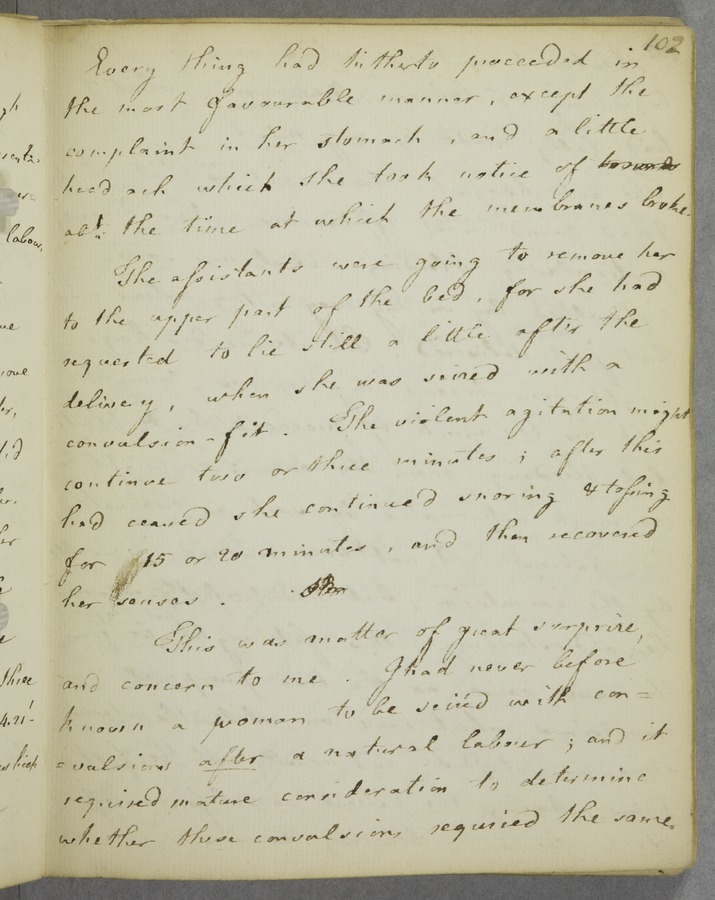 102
Every thing had hitherto proceeded in
the most favourable manner, except the
complaint in her stomach, and a little
head ach which she took notice of
abt. the time at which the membranes broke.
The assistants were going to remove her
to the upper part of the bed, for she had
requested to lie still a little after the
delivery, when she was seized with a
convulsion-fit. The violent agitation might
continue two or three minutes; after this
had ceased she continued snoring & tossing
for 15 or 20 minutes, and then recovered
her senses.
This was matter of great surprize,
and concern to me. I had never before
known a woman to be seized with con=
=vulsions after a natural labour; and it
required mature consideration to determine
whether these convulsions required the same